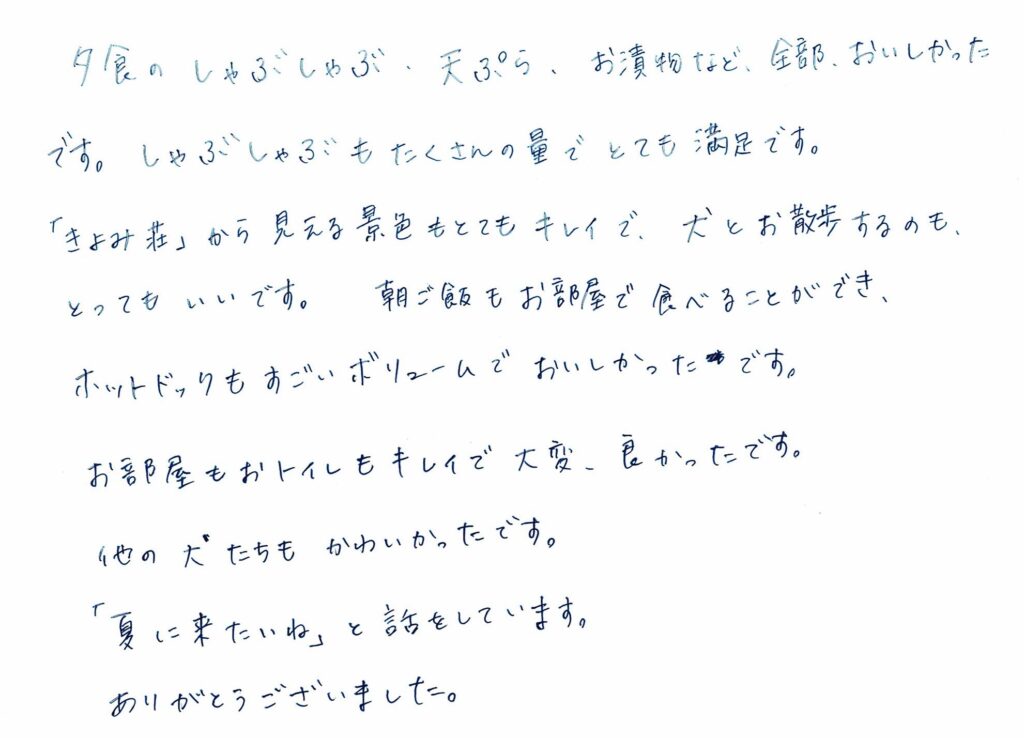 夕食の しゃぶしゃぶ、天ぷら、お漬物など、全部、おいしかった
です。しゃぶしゃぶもたくさんの量で とても満足です。
「きよみ荘」から見える景色もとてもキレイで、犬とお散歩するのも、
とってもいいです。 朝ご飯もお部屋で食べることができ、
ホットドックもすごいボリュームで おいしかったです。
お部屋もおトイレもキレイで大変、良かったです。
他の犬たちも かわいかったです。
「夏に来たいね」と話をしています。
ありがとうございました。